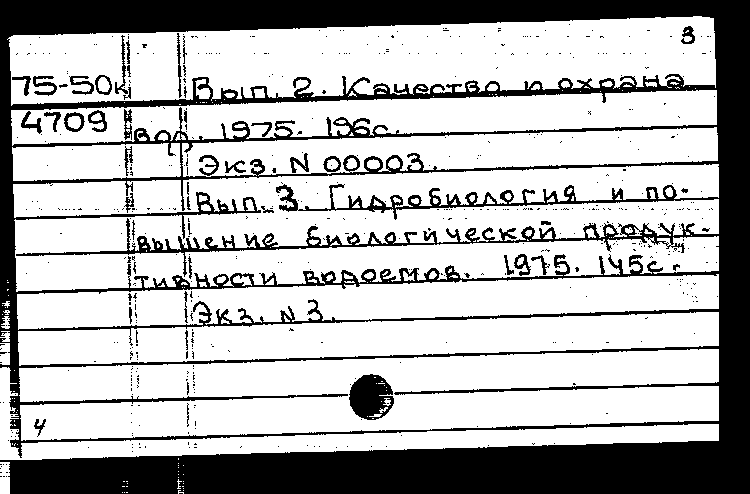 3
75-50к Вып. 2. Качество и охрана
4709 вод. 1975. 196с.
Экз. N 00003.
Вып. 3. Гидробиология и по-
вышение биологической продук-
тивности водоемов. 1975. 145с.
Экз. N 3.
4